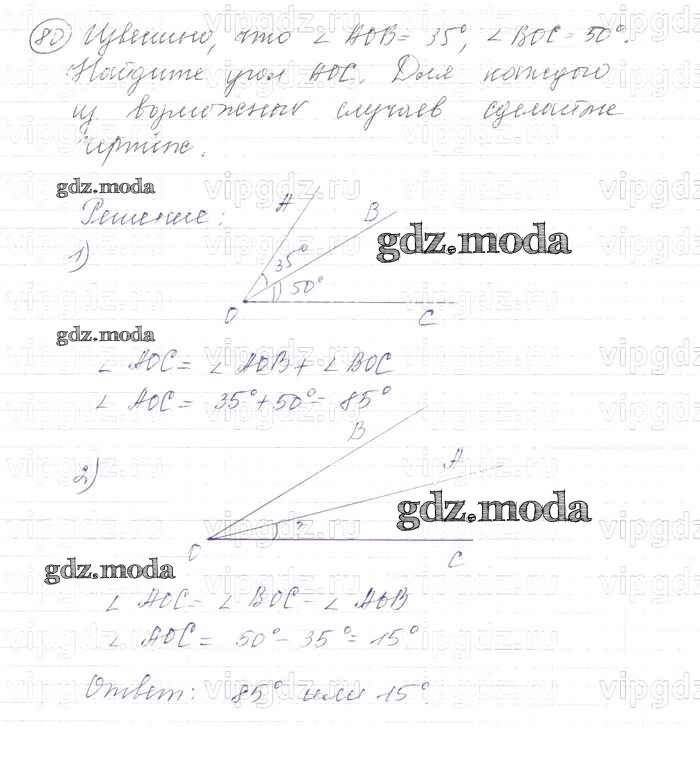 80 Известно, что ∠ AOB = 35°, ∠ BOC = 50°.
Найдите угол AOC. Для каждого
из возможных случаев сделайте
чертёж.
gdz.moda
Решение:
1)
A
B
gdz.moda
35°
50°
O
C
gdz.moda
∠ AOC = ∠ AOB + ∠ BOC
∠ AOC = 35° + 50° = 85°
2)
B
A
gdz.moda
?
O
C
gdz.moda
∠ AOC = ∠ BOC - ∠ AOB
∠ AOC = 50° - 35° = 15°
Ответ: 85° или 15°.
vipgdz.ru